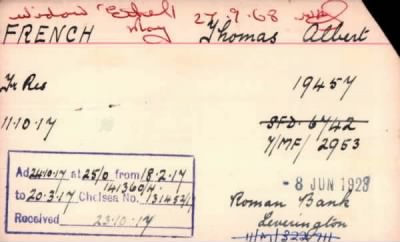 widow Ethel May 27.9.68
FRENCH Thomas Albert
Tr Res 19457
11.10.17 SFD. 6742
7/MF/ 2953
Ad 24.10.17 at 25/0 from 18.2.17
141360/H.
to 20.3.17 Chelsea No. 131452/1
- 8 JUN 1923
Roman Bank
Received 23.10.17 Leverington